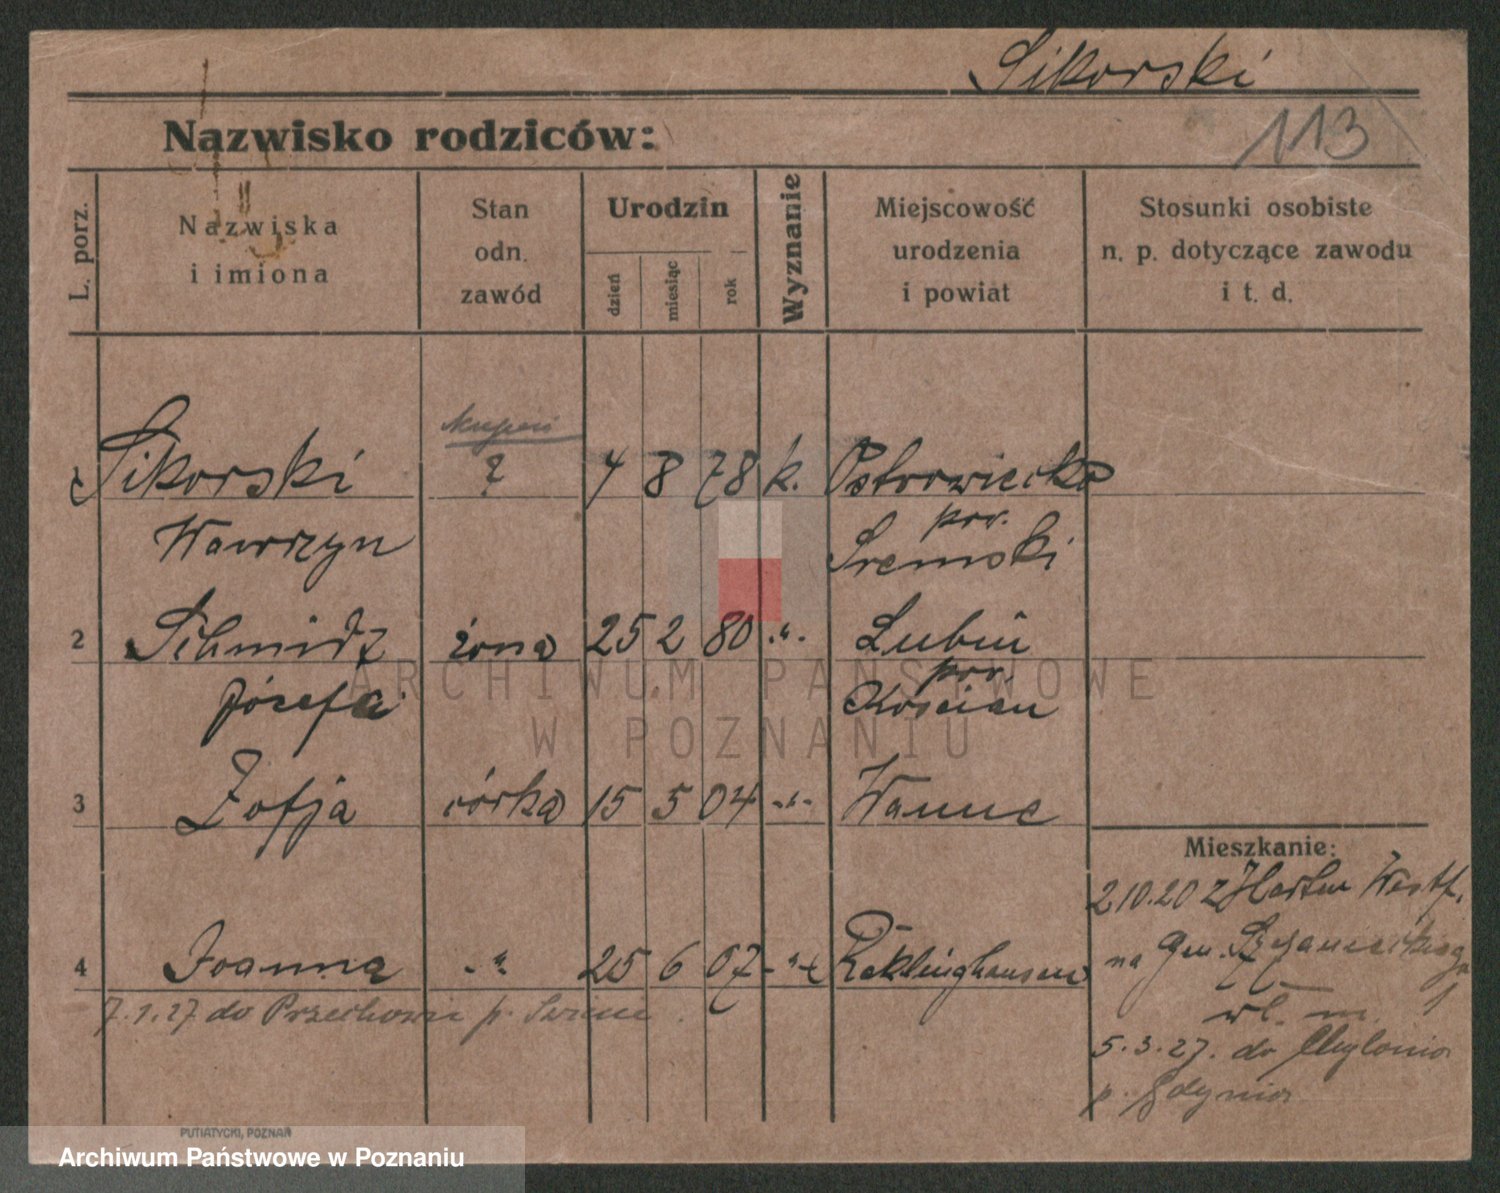 Sikorski
113
Nazwisko rodziców:
L. porz.
Nazwiska
i imiona
Stan
odn.
zawód
Urodzin
dzień
miesiąc
rok
Wyznanie
Miejscowość
urodzenia
i powiat
Stosunki osobiste
n. p. dotyczące zawodu
i t. d.
1 Sikorski ? 4 8 78 k. Ostrowieczko
Wawrzyn pow. Sremski
2 Schmidz żona 25 2 80 -"- Lubiń
Józefa pow. Kościan
3 Zofja córka 15 5 04 -"- Wanne
Mieszkanie:
2.10.20 z Westf.
4 Joanna -"- 25 6 07 -"- Reklinghausen
na gen.
7.1.27 do p.
wł. m. 1
5.3.27. do Chylonia
p. Gdynia
PUTIATYCKI, POZNAŃ
ARCHIWUM PAŃSTWOWE
W POZNANIU
Archiwum Państwowe w Poznaniu